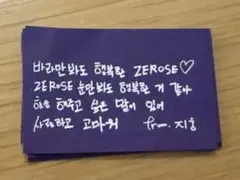 바라만 봐도 행복한 ZEROSE♡
ZEROSE 눈만 봐도 행복한 거 같아
하고 싶은 말이 있어
사랑하고 고마워 from. 지웅